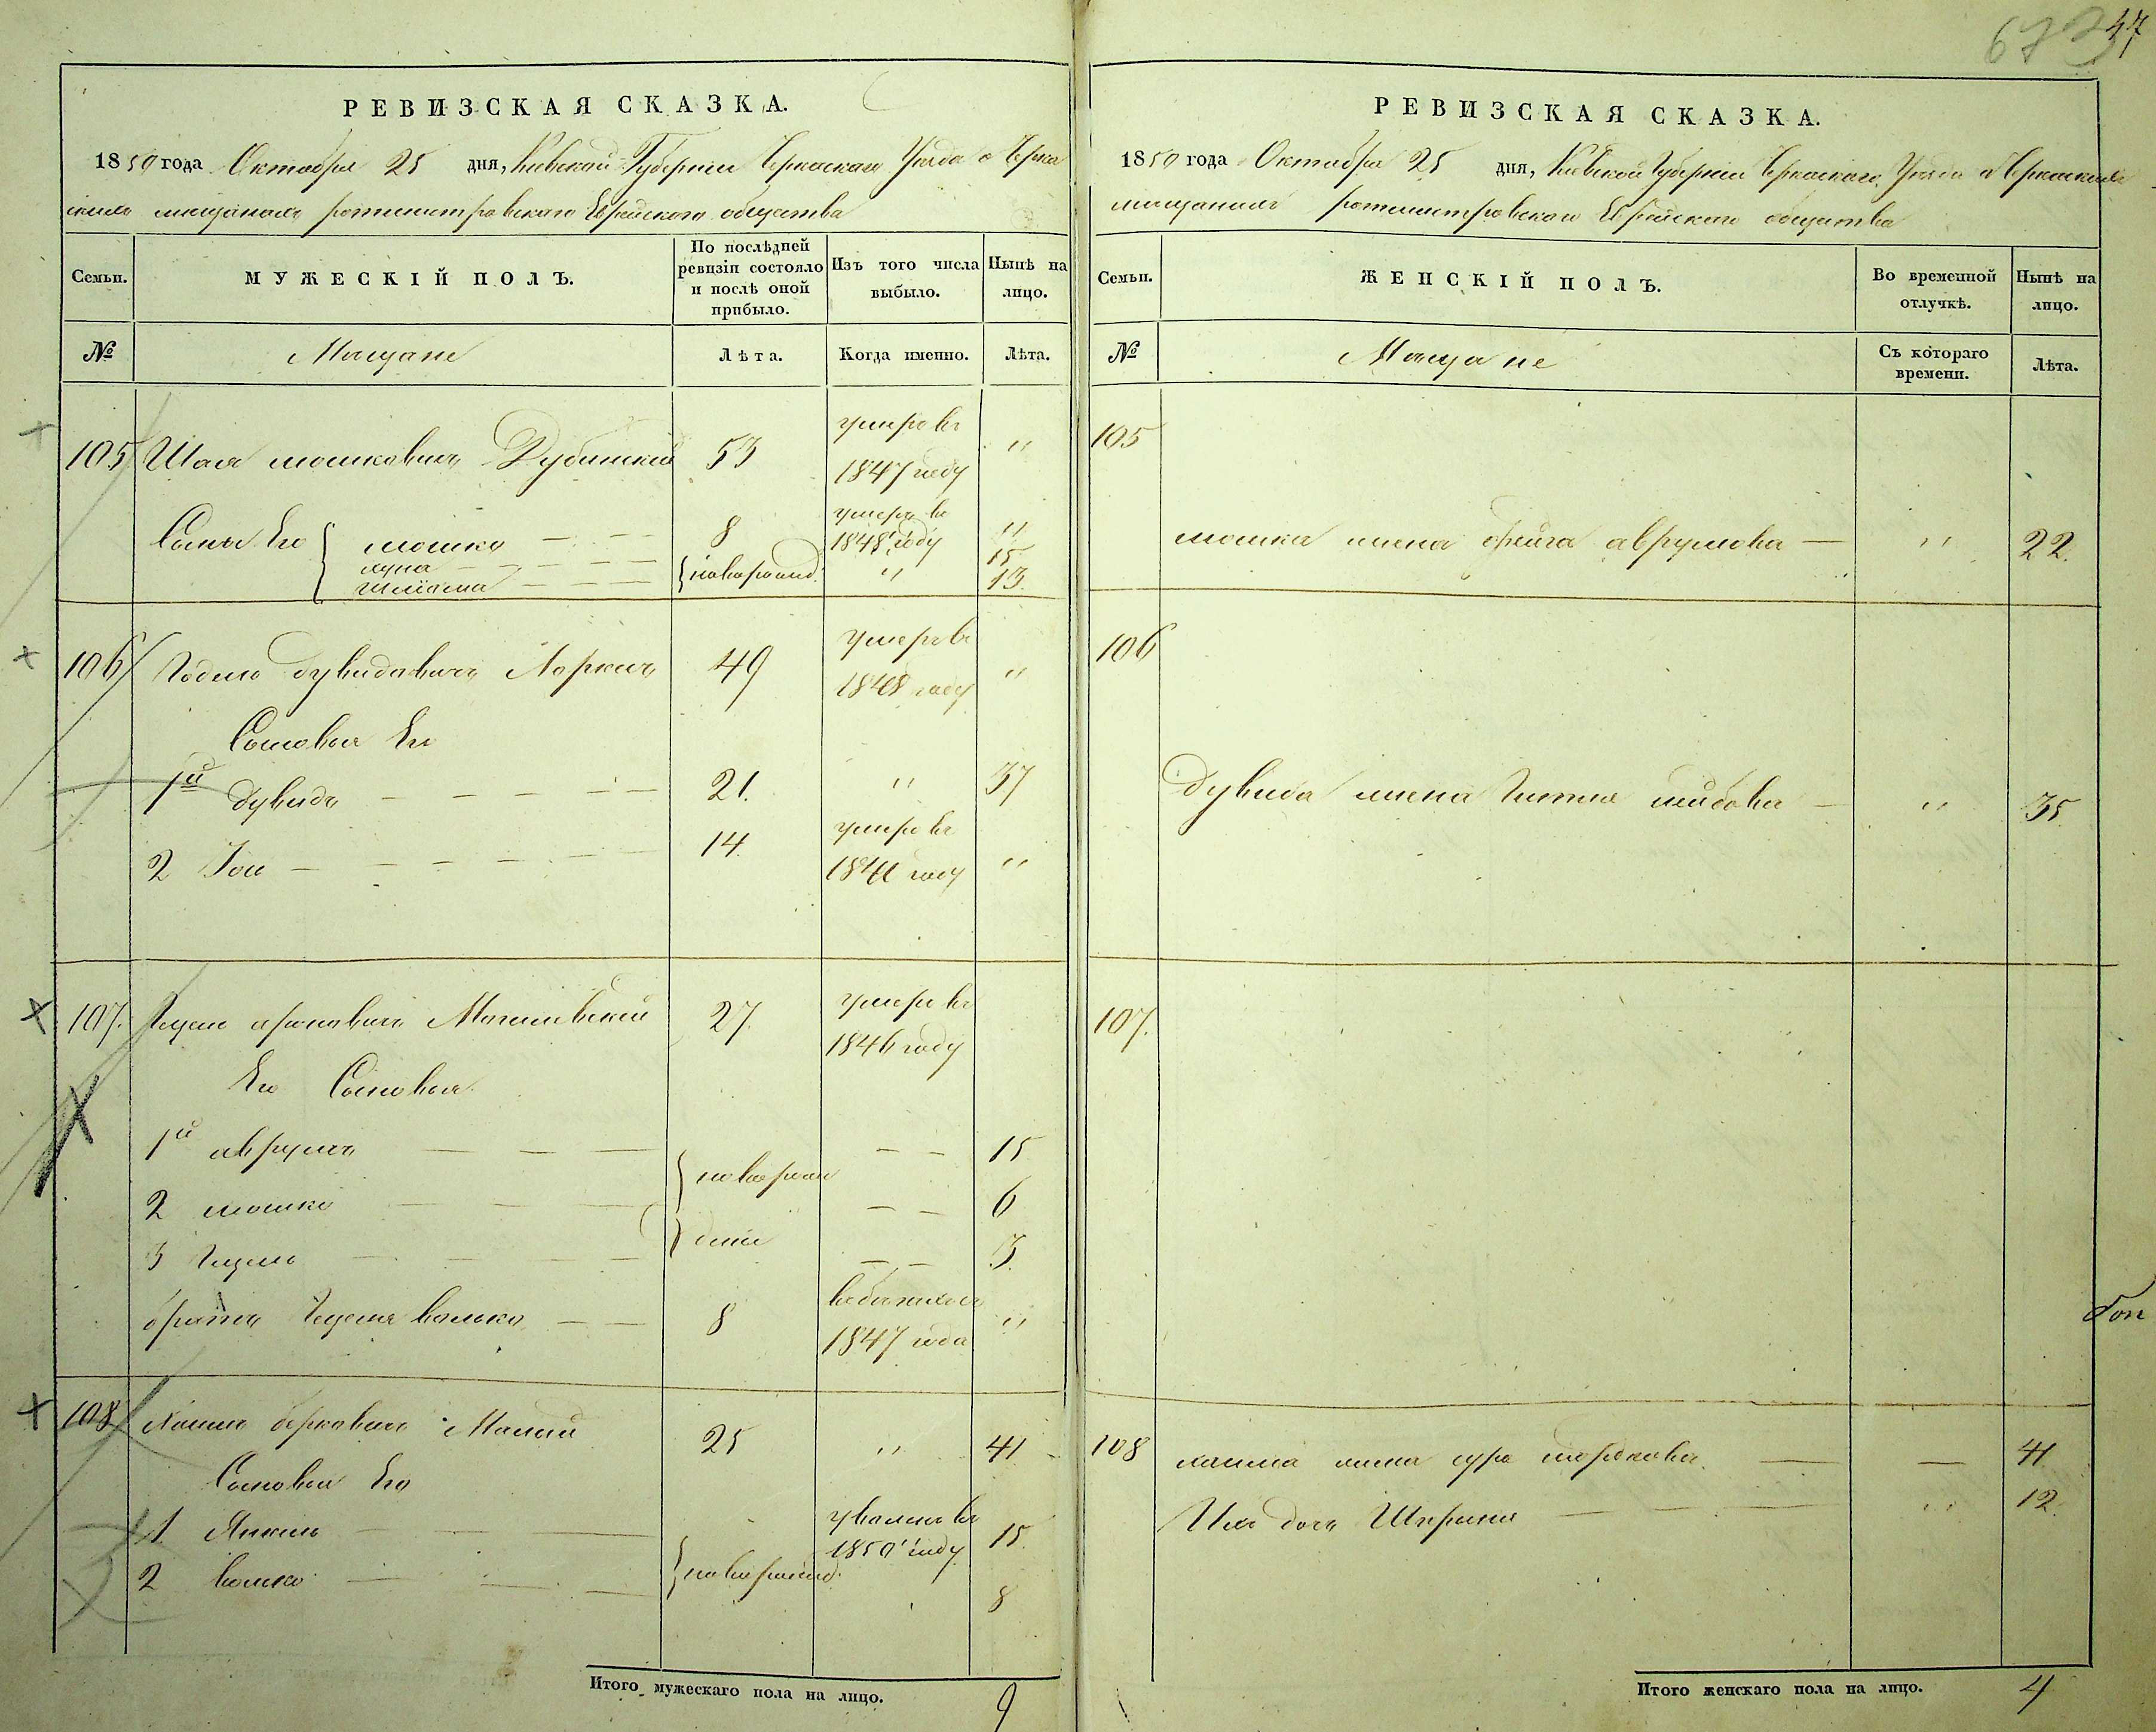 673 47
РЕВИЗСКАЯ СКАЗКА.
1850 года Октября 25 дня, Киевской Губернии Черкаскаго Уезда о Черка
скихъ мещанахъ ротмистровскаго Еврейскаго общества
Семьи.
МУЖЕСКІЙ ПОЛЪ.
По послѣдней ревизіи состояло и послѣ оной прибыло.
Изъ того числа выбыло.
Нынѣ на лицо.
№
Мещане
Лѣта.
Когда именно.
Лѣта.
105 Шая мошковичъ Дубинский 53 умеръ въ 1847 году "
Сыны Его мошко 8 умеръ въ 1848 году "
15
Шліома новорожд. " 13
106 Годель дувидовичъ 49 умеръ въ 1848 году "
Сыновья Его
1й дувидъ 21. " 37
2 Іось 14. умеръ въ "
107. ароновичъ 27. умеръ въ 1846 году
Его Сыновья
1й аврумъ 15
2 мошко новорож 6
3 дены 3.
братъ волько 8 1847 года "
108 Хаимъ берковичъ Малый 25 " 41
Сыновья Его
1. Янкель 1850 году 15.
2 волько новорожд. 8
Итого мужескаго пола на лицо. 9
РЕВИЗСКАЯ СКАЗКА.
1850 года Октября 25 дня, Киевской Губерніи Черкаскаго Уезда о Черкаскихъ
мещанахъ ротмистровскаго Еврейскаго общества
Семьи.
ЖЕНСКІЙ ПОЛЪ.
Во временной отлучкѣ.
Нынѣ на лицо.
№
Мещане
Съ котораго времени.
Лѣта.
105
мошка жена фейга аврумова " 22.
106
Дувида жена Гитля лейбова " 35.
107.
108 хаима жена сура 41
Ихъ дочь Шпринца " 12.
Итого женскаго пола на лицо. 4